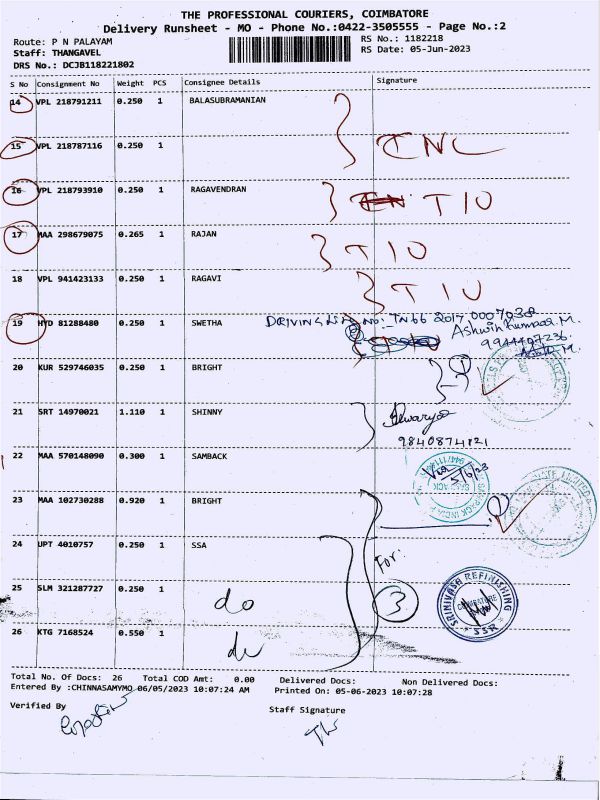 THE PROFESSIONAL COURIERS, COIMBATORE
Delivery Runsheet - MO - Phone No.:0422-3505555 - Page No.:2
Route: P N PALAYAM RS No.: 1182218
Staff: THANGAVEL RS Date: 05-Jun-2023
DRS No.: DCJB118221802
S No Consignment No Weight PCS Consignee Details Signature
14 VPL 218791211 0.250 1 BALASUBRAMANIAN
15 VPL 218787116 0.250 1 INC
16 VPL 218793910 0.250 1 RAGAVENDRAN TIO
17 MAA 298679075 0.265 1 RAJAN TIO
18 VPL 941423133 0.250 1 RAGAVI TIO
DRIVING LIN NO: TN66 2017 0007038
19 HYD 81288480 0.250 1 SWETHA Ashwin Kumaar.M.
9944407236
20 KUR 529746035 0.250 1 BRIGHT
21 SRT 14970021 1.110 1 SHINNY
9840874121
22 MAA 570148090 0.300 1 SAMBACK
5/6/23
23 MAA 102730288 0.920 1 BRIGHT
24 UPT 4010757 0.250 1 SSA
For:
25 SLM 321287727 0.250 1 do 3
SRINIVASA REFINISHING
COIMBATORE
SSR
26 KTG 7168524 0.550 1 do
Total No. Of Docs: 26 Total COD Amt: 0.00 Delivered Docs: Non Delivered Docs:
Entered By :CHINNASAMYMO 06/05/2023 10:07:24 AM Printed On: 05-06-2023 10:07:28
Verified By Staff Signature